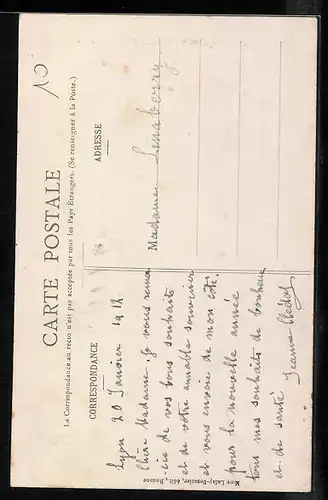 10
CARTE POSTALE
La Correspondance au recto n'est pas acceptée par tous les Pays Étrangers. (Se renseigner à la Poste.)
CORRESPONDANCE
Lyon 20 Janvier 1912
Chère Madame. je vous remer
-cie de vos bons souhaits
et de votre aimable souvenir
et vous envoie de mon côté
pour la nouvelle année
tous mes souhaits de bonheur
et de santé Jeanne
ADRESSE
Madame
Mme Luisy-Donazier, édit., Roanne